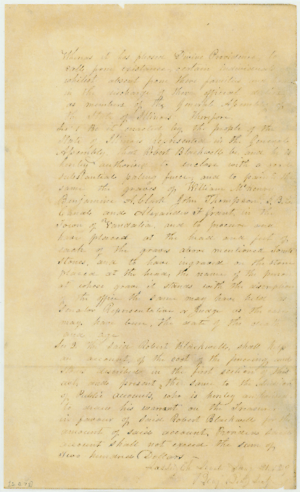 Whereas it has pleased Divine Providence, to
call from existence, certain individuals
whilst absent from their families and
in the discharge of their official duties
as members of the General Assembly of
the State of Illinois Therefore
Sec 1 Be it enacted by the people of the
State of Illinois represented in the General
Assembly That Robert Blackwell be and he is
hereby authorized to enclose with a good
substantial paling fence, and to paint the
same the graves of William McHenry
Benjamin A. Clark John Thompson
and Alexander P. Grant, in the
Town of Vandalia, and to procure and
have placed at the head and foot of
each of the graves above mentioned Tomb
stones, and to have engraved on the stone
placed at the head, the name of the person
at whose grave it stands with the inscription
of the office the same may have held as
Senator Representative or Judge as the case
may have been, the date of the
and age
Sec 2 The said Robert Blackwell, shall keep
an account, of the cost of the procuring and
in the first section of this
act, and present, the same to the Auditor
of Public Accounts, who is hereby authorized
to draw his warrant on the Treasurer
in favour of said Robert Blackwell for the
amount of said account, Provided said
account shall not exceed the sum of
Hundred Dollars